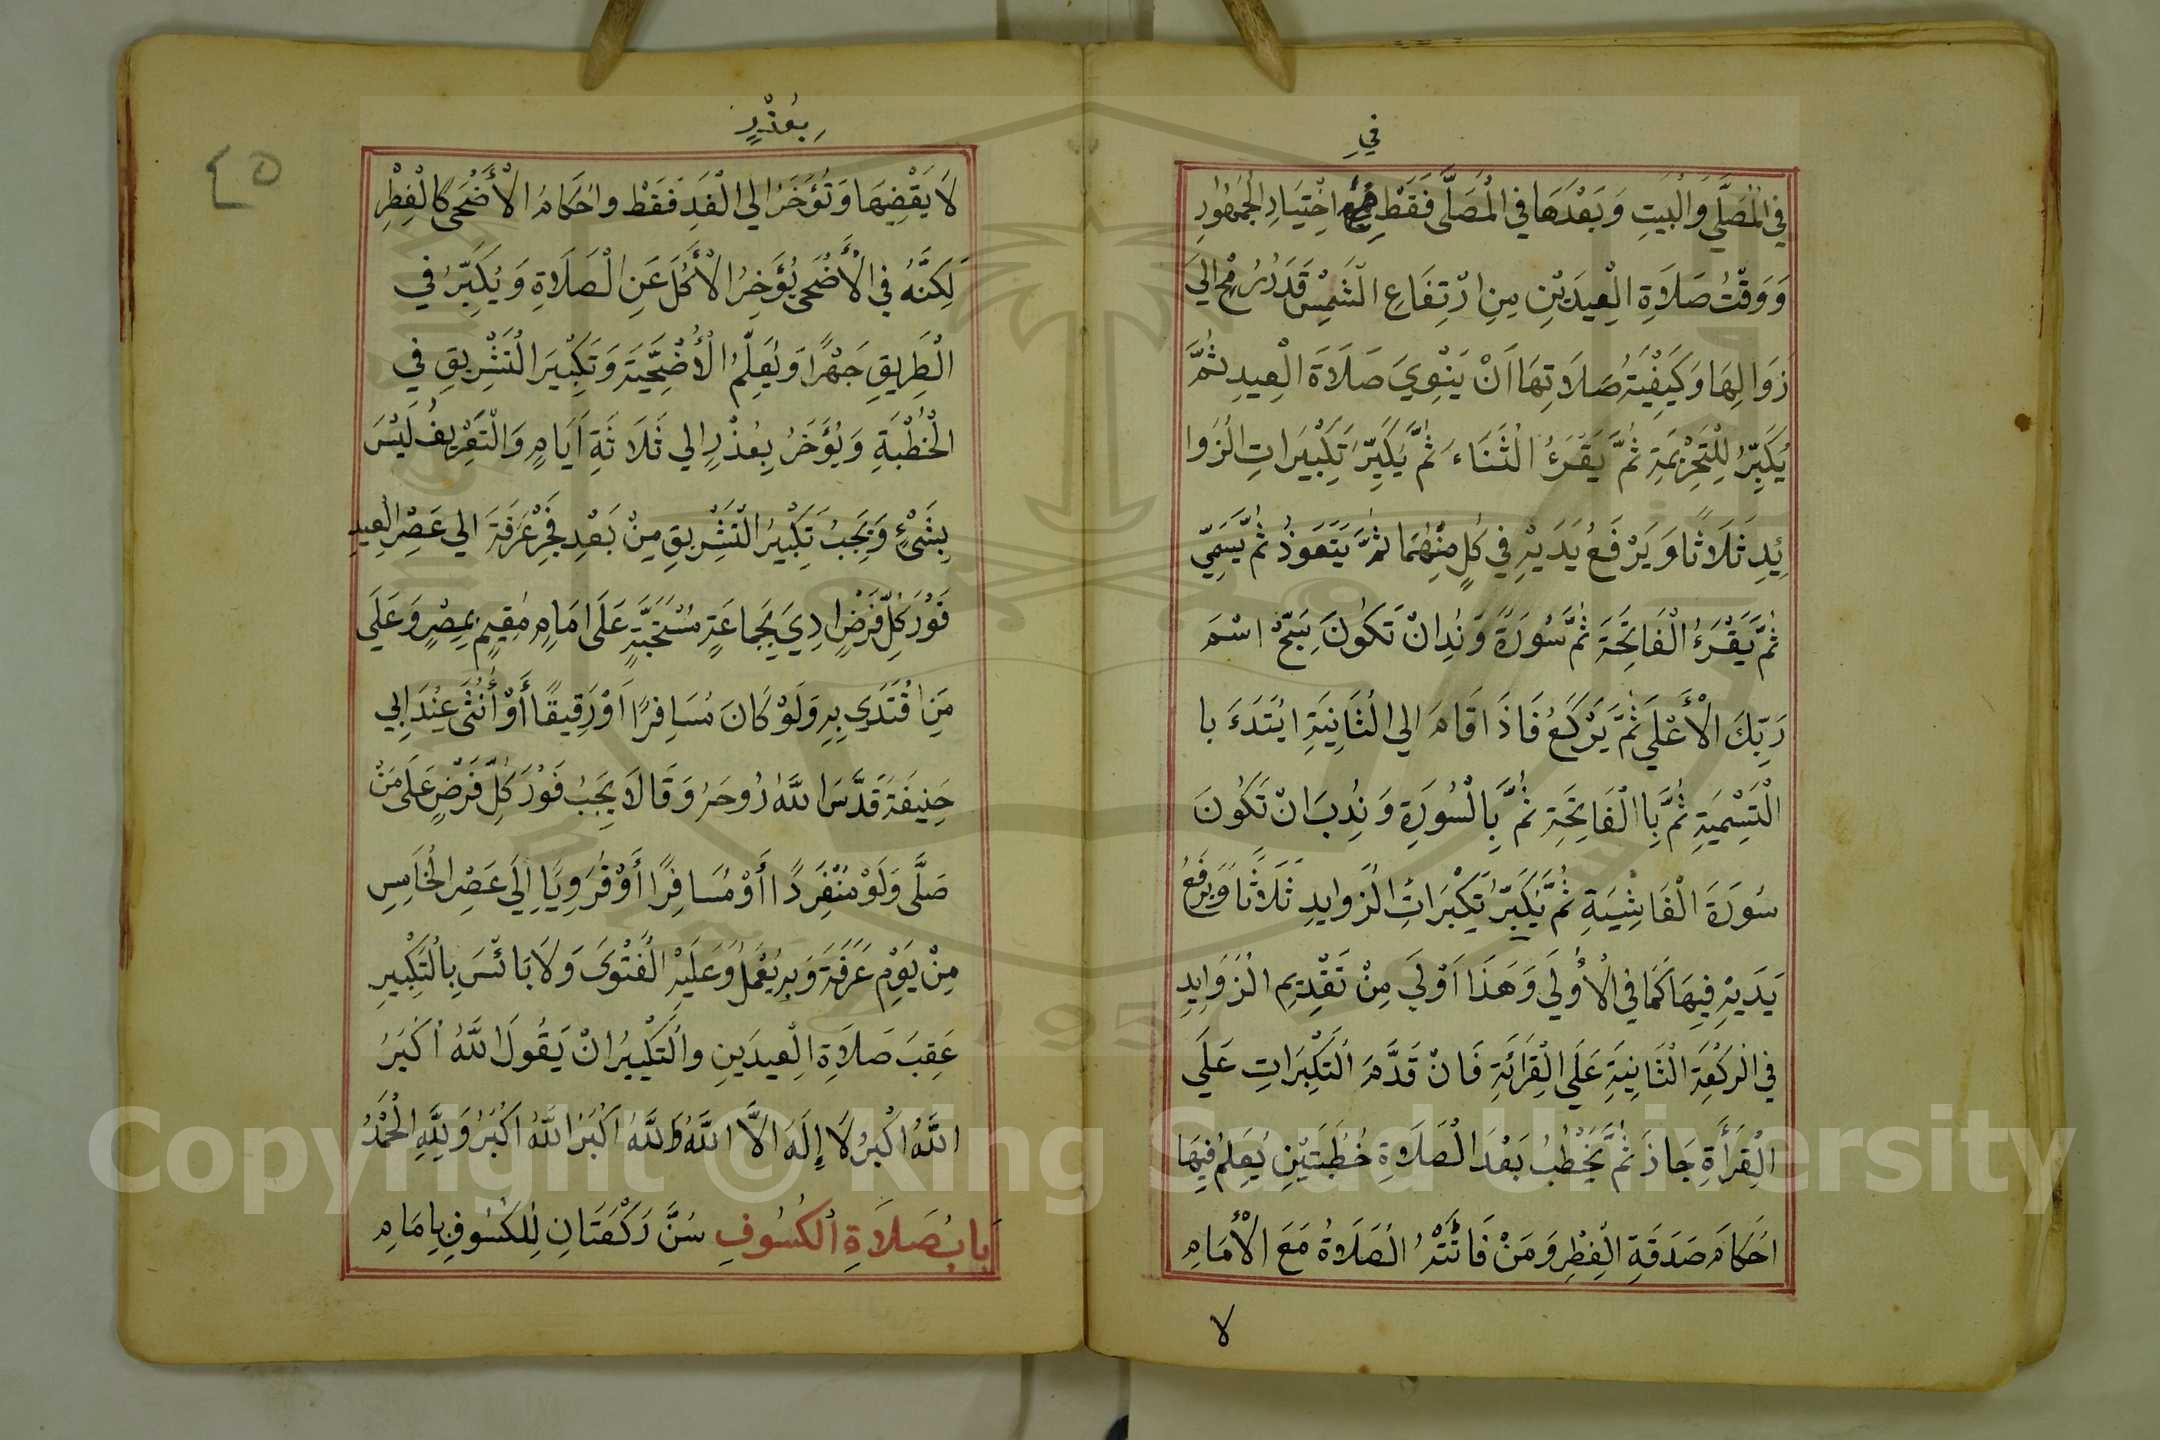 في
في المُصَلَّى وَالْبَيْتِ وَبَعْدَهَا فِي الْمُصَلَّى فَقَطْ اخْتِيَارِ الْجُمْهُورِ
وَوَقْتُ صَلَاةِ الْعِيدَيْنِ مِنِ ارْتِفَاعِ الشَّمْسِ قَدْرَ رُمْحٍ الي
زَوَالِهَا وَكَيْفِيَّةُ صَلَاتِهَا اَنْ يَنْوِيَ صَلَاةَ الْعِيدِ ثُمَّ
يُكَبِّرُ لِلتَّحْرِيمَةِ ثُمَّ يَقْرَءُ الثَّنَاءَ ثُمَّ يُكَبِّرُ تَكْبِيرَاتِ الزَّوا
ئِدِ ثَلَاثًا وَيَرْفَعُ يَدَيْهِ فِي كُلٍ مِنْهُمَا ثُمَّ يَتَعَوذُ ثُمَّ يُسَمِّي
ثُمَّ يَقْرَءُ الْفَاتِحَةَ ثُمَّ سُورَةً وَنُدِبَ انْ تَكُونَ سَبِّحْ اسْمَ
رَبِّكَ الْأَعْلَي ثُمَّ يَرْكَعُ فَاذَا قَامَ الي الثَّانِيَةِ ابْتَدَءَ با
التَّسْمِيَةِ ثُمَّ بِاالْفَاتِحَةِ ثُمَّ بِالسُورَةِ وَنُدِبَ انْ تَكُونَ
سُورَةَ الْغَاشِيَةِ ثُمَّ يُكَبِّرُ تَكْبِرَاتِ الزَوايِدِ ثَلَاثًا وَيَرْفَعُ
يَدَيْهِ فِيهَا كَمَا فِي الْأُولَي وَهَذَا اَوْلَي مِنْ تَقْدِيمِ الزَوَايِدِ
فِي الرَكْعَةِ الثَّانِيَةِ عَلَي الْقِرَائَةِ فَانْ قَدَّمَ التَكْبِرَاتِ عَلَي
الْقِرَأَةِ جَازَ ثُمَّ يَخْطُبُ بَعْدَ الصَلَاوةِ خُطْبَتَيْنِ يُعَلِّمُ فِيهَا
احَكَامَ صَدَقَةِ الْفِطْرِ وَمَنْ فَاتَتْهُ الصَلَاوةُ مَعَ الْأَمَامِ
لا
بِعُذْرٍ
٤٥
لَا يَقْضِيهَا وَتُؤَخَرُ الي الْغَدِ فَقَطْ واحَكَامُ الْأَضْحَى كَالْفِطْرِ
لَكِنَّهُ فِي الْأَضْحَى يُؤَخِرُ الْأَكْلَ عَنِ الْصَلَاةِ وَيُكَبِّرُ فِي
الْطَرِيقِ جَهْرًا وَيُعَلِّمُ الْأُضْحِيَّةَ وَتَكْبِيرَ الْتَشْرِيقِ فِي
الْخُطْبَةِ وَيُؤَخَرُ بِعُذْرٍ الي ثَلَاثَةِ اَيَامٍ وَالْتَعْرِيفُ لَيْسَ
بِشَيْءٍ وَيَجِبُ تَكْبِيرُ الْتَشْرِيقِ مِنْ بَعْدِ فَجْرِ عَرَفَةَ الي عَصْرِ الْعِيدِ
فَوْرَ كُلِّ فَرْضٍ ادِيَ بِجَمَاعَةٍ مُسْتَحَبَّةٍ عَلَى امَامٍ مُقِيمٍ بِمِصْرٍ وَعَلَي
مَنِ اقْتَدَي بِهِ وَلَوْ كَانَ مُسَافِرًا اَوْ رَقِيقًا أَوْ أُنْثَى عِنْدَ ابِي
حَنِيفَةَ قَدَّسَ اللَّهُ رُوحَهُ وَقَالَا يَجِبُ فَوْرَ كُلِّ فَرْضٍ عَلَى مَنْ
صَلَّى وَلَوْ مُنْفَرِدًا أَوْ مُسَافِرًا أَوْ قُرَوِيًا إِلَي عَصْرِ الْخَامِسِ
مِنْ يَوْمِ عَرَفَةَ وَبِهِ يُعْمَلُ وَعَلَيْهِ الْفَتْوَى وَلَا بَائْسَ بِالْتَكْبِيرِ
عَقِبَ صَلَاةِ الْعِيدَيْنِ والْتَكْبِيرُ انْ يَقُولَ اللَّهُ اَكْبَرُ
اللَّهُ اكْبَرُ لَا إِلَهَ الَّا اللَّهُ وَاللَّهُ اَكْبَرُ اللَّهُ اَكْبَرُ وَلِلَّهِ الْحَمْدُ
بابُ صَلَاةِ الكُسُوفِ سُنَّ رَكْعَتَانِ لِلْكُسُوفِ بِامَامِ
Copyright © King Saud University
1957